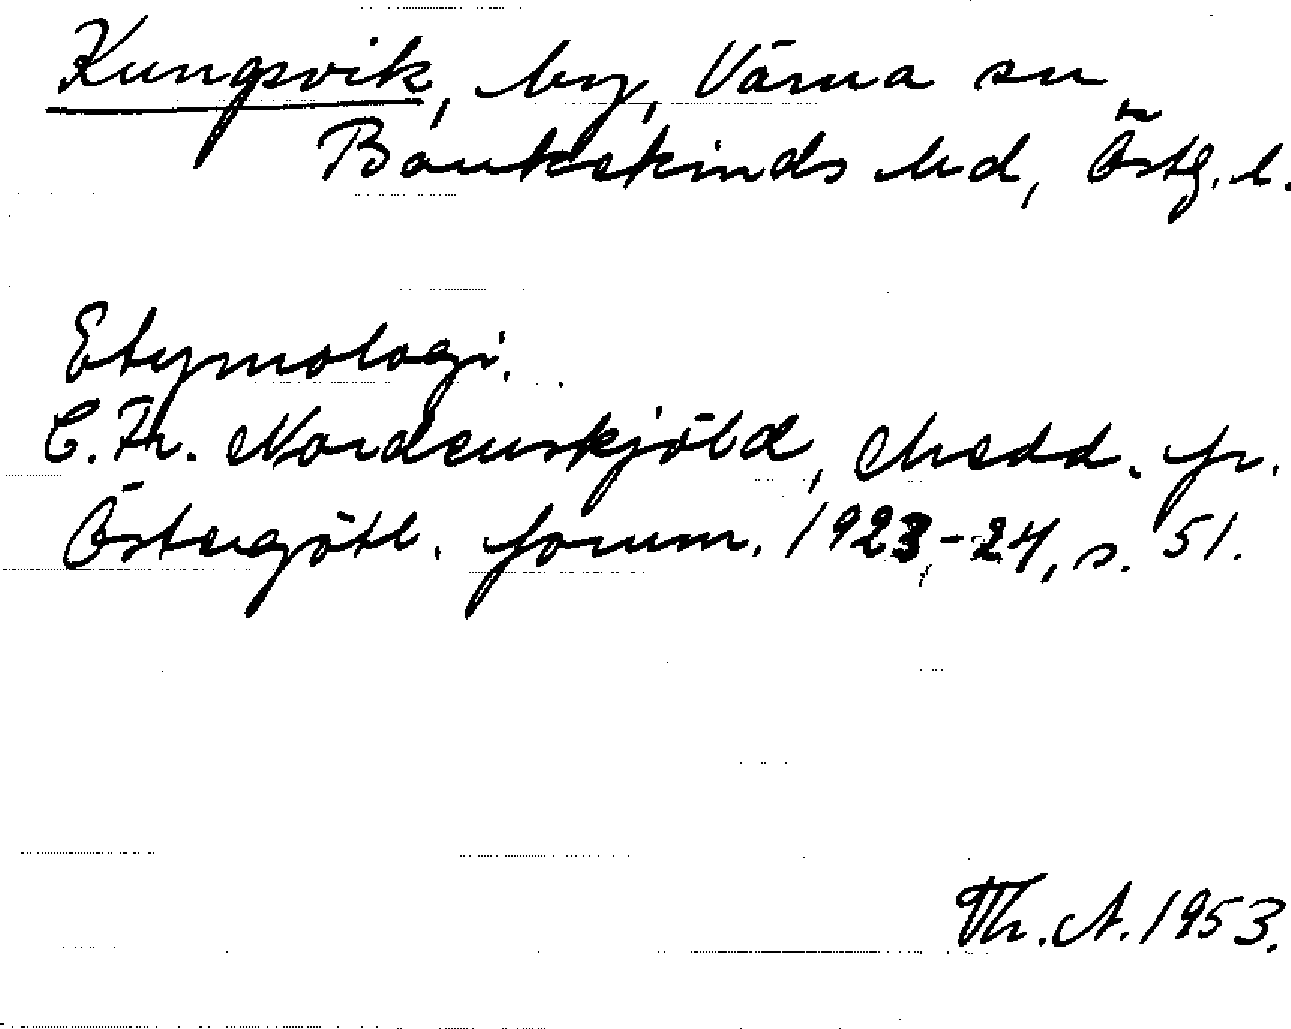 Kungsvik, by, Värna sn
Bankekinds hd, Östg. l.
Etymologi.
C. Fr. Nordenskjöld, Medd. fr.
Östergötl. fornm. 1923-24, s. 51.
Th. A. 1953.